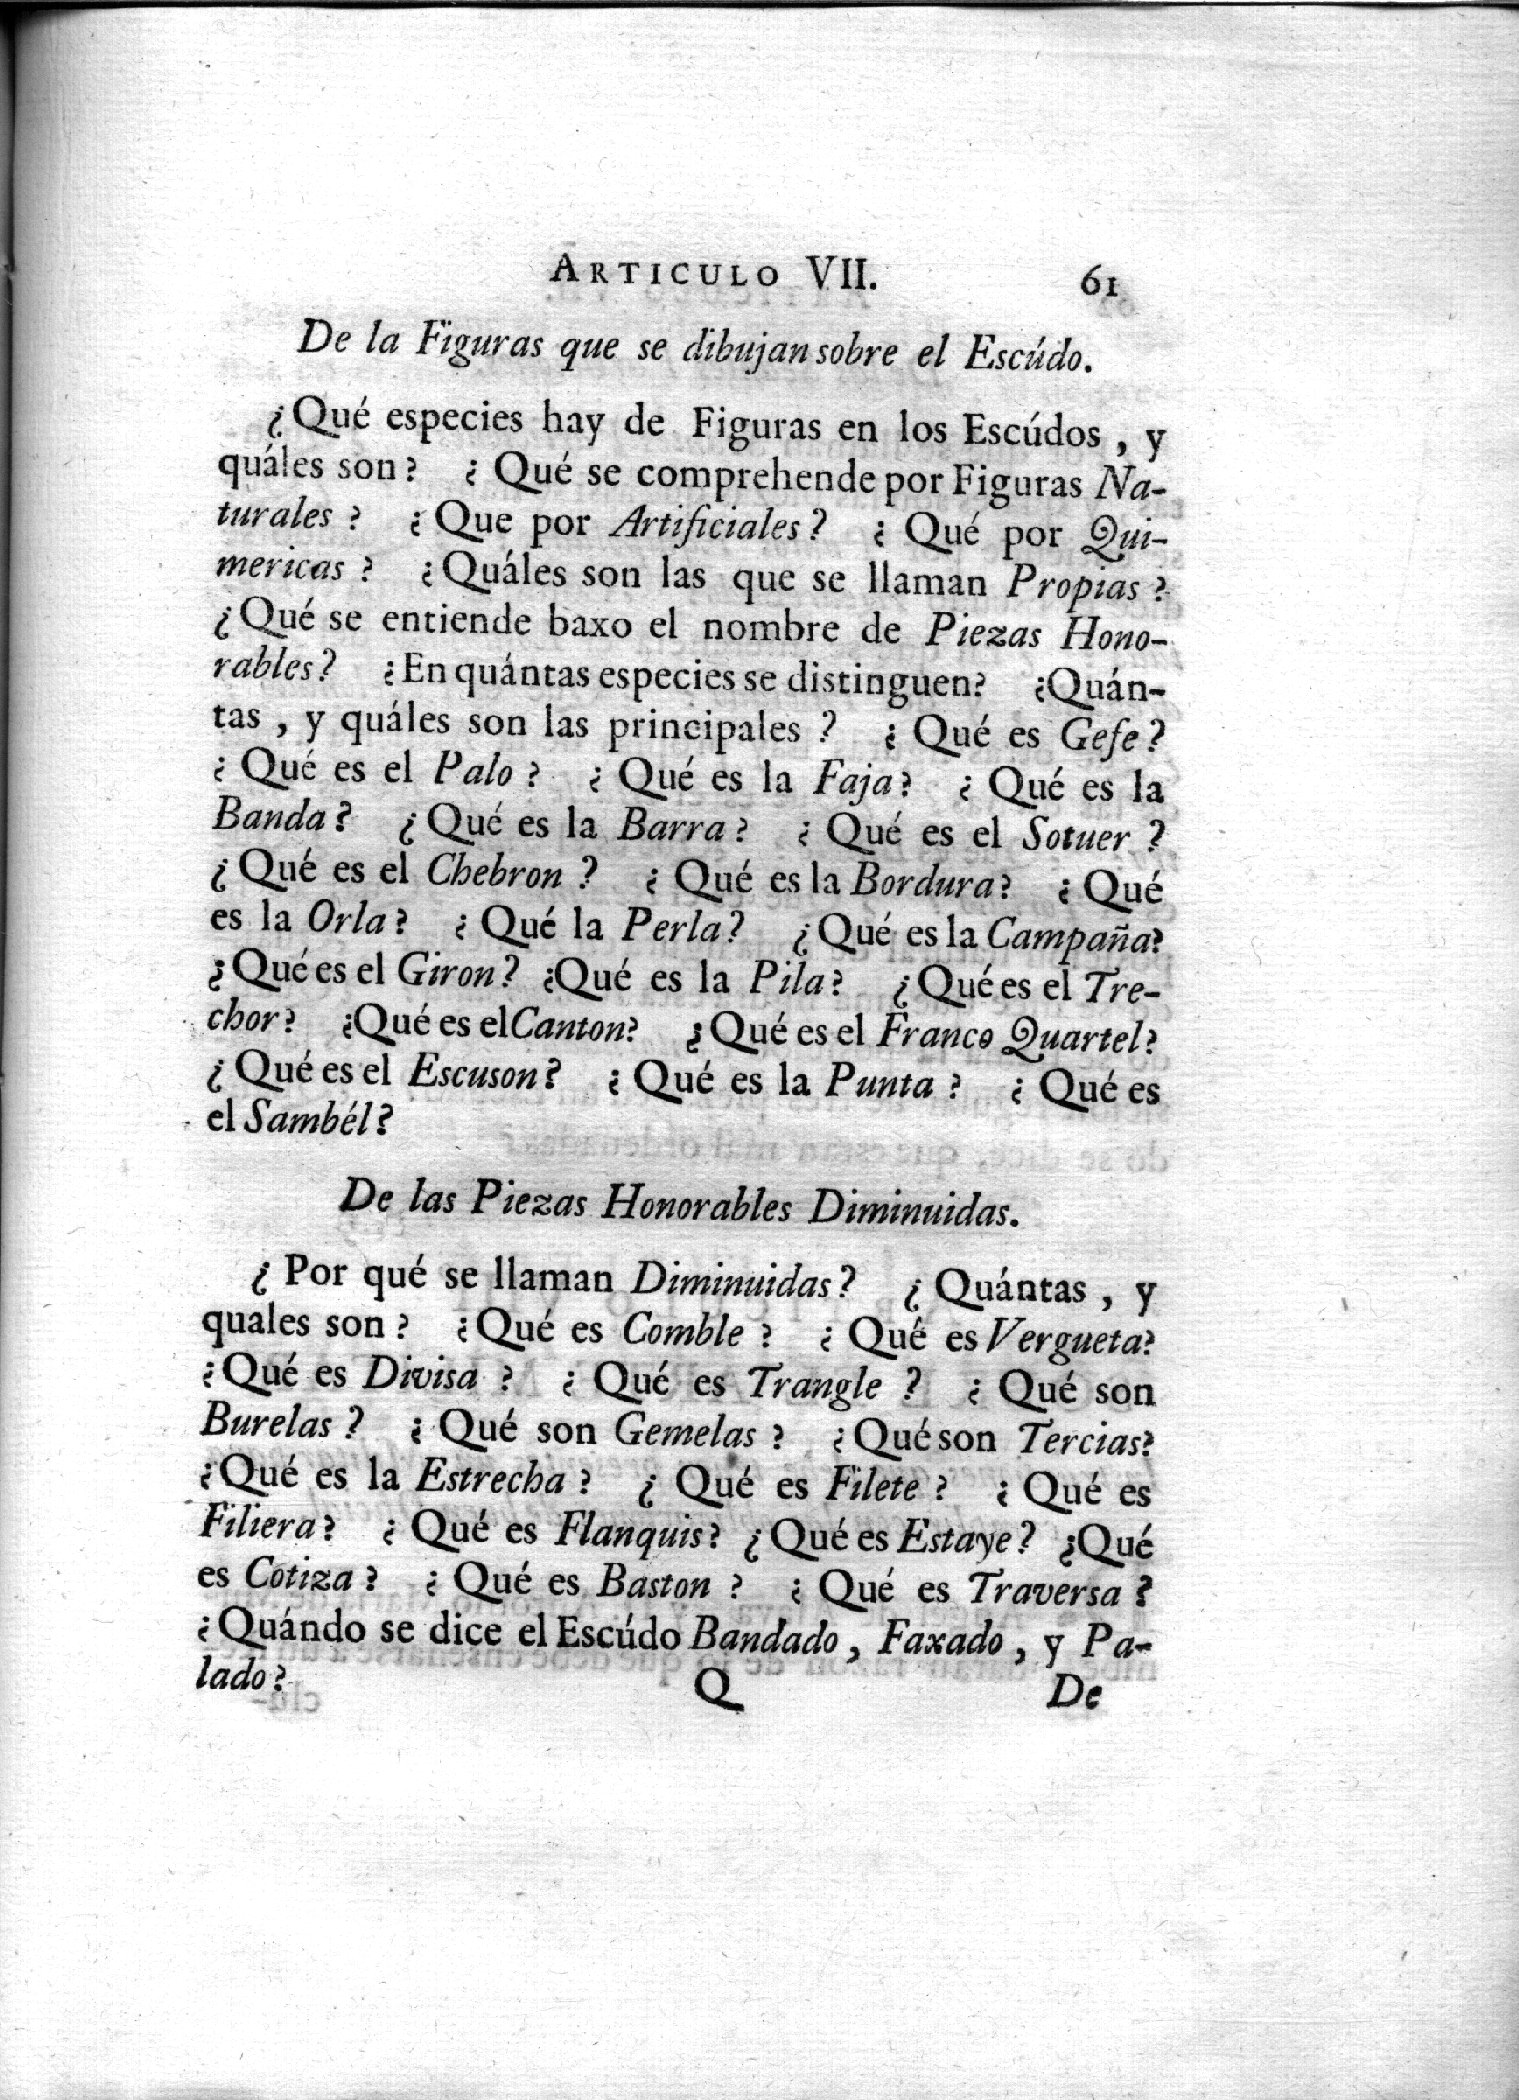 ARTICULO VII. 61
De la Figuras que se dibujan sobre el Escúdo.
¿Qué especies hay de Figuras en los Escúdos, y
quáles son? ¿Qué se comprehende por Figuras Na-
turales? ¿Que por Artificiales? ¿Qué por Qui-
mericas? ¿Quáles son las que se llaman Propias?
¿Qué se entiende baxo el nombre de Piezas Hono-
rables? ¿En quántas especies se distinguen? ¿Quán-
tas, y quáles son las principales? ¿Qué es Gefe?
¿Qué es el Palo? ¿Qué es la Faja? ¿Qué es la
Banda? ¿Qué es la Barra? ¿Qué es el Sotuer?
¿Qué es el Chebron? ¿Qué es la Bordura? ¿Qué
es la Orla? ¿Qué la Perla? ¿Qué es la Campaña?
¿Qué es el Giron? ¿Qué es la Pila? ¿Qué es el Tre-
chor? ¿Qué es el Canton? ¿Qué es el Franco Quartel?
¿Qué es el Escuson? ¿Qué es la Punta? ¿Qué es
el Sambél?
De las Piezas Honorables Diminuidas.
¿Por qué se llaman Diminuidas? ¿Quántas, y
quales son? ¿Qué es Comble? ¿Qué es Vergueta?
¿Qué es Divisa? ¿Qué es Trangle? ¿Qué son
Burelas? ¿Qué son Gemelas? ¿Qué son Tercias?
¿Qué es la Estrecha? ¿Qué es Filete? ¿Qué es
Filiera? ¿Qué es Flanquis? ¿Qué es Estaye? ¿Qué
es Cotiza? ¿Qué es Baston? ¿Qué es Traversa?
¿Quándo se dice el Escúdo Bandado, Faxado, y Pa-
lado?
Q De